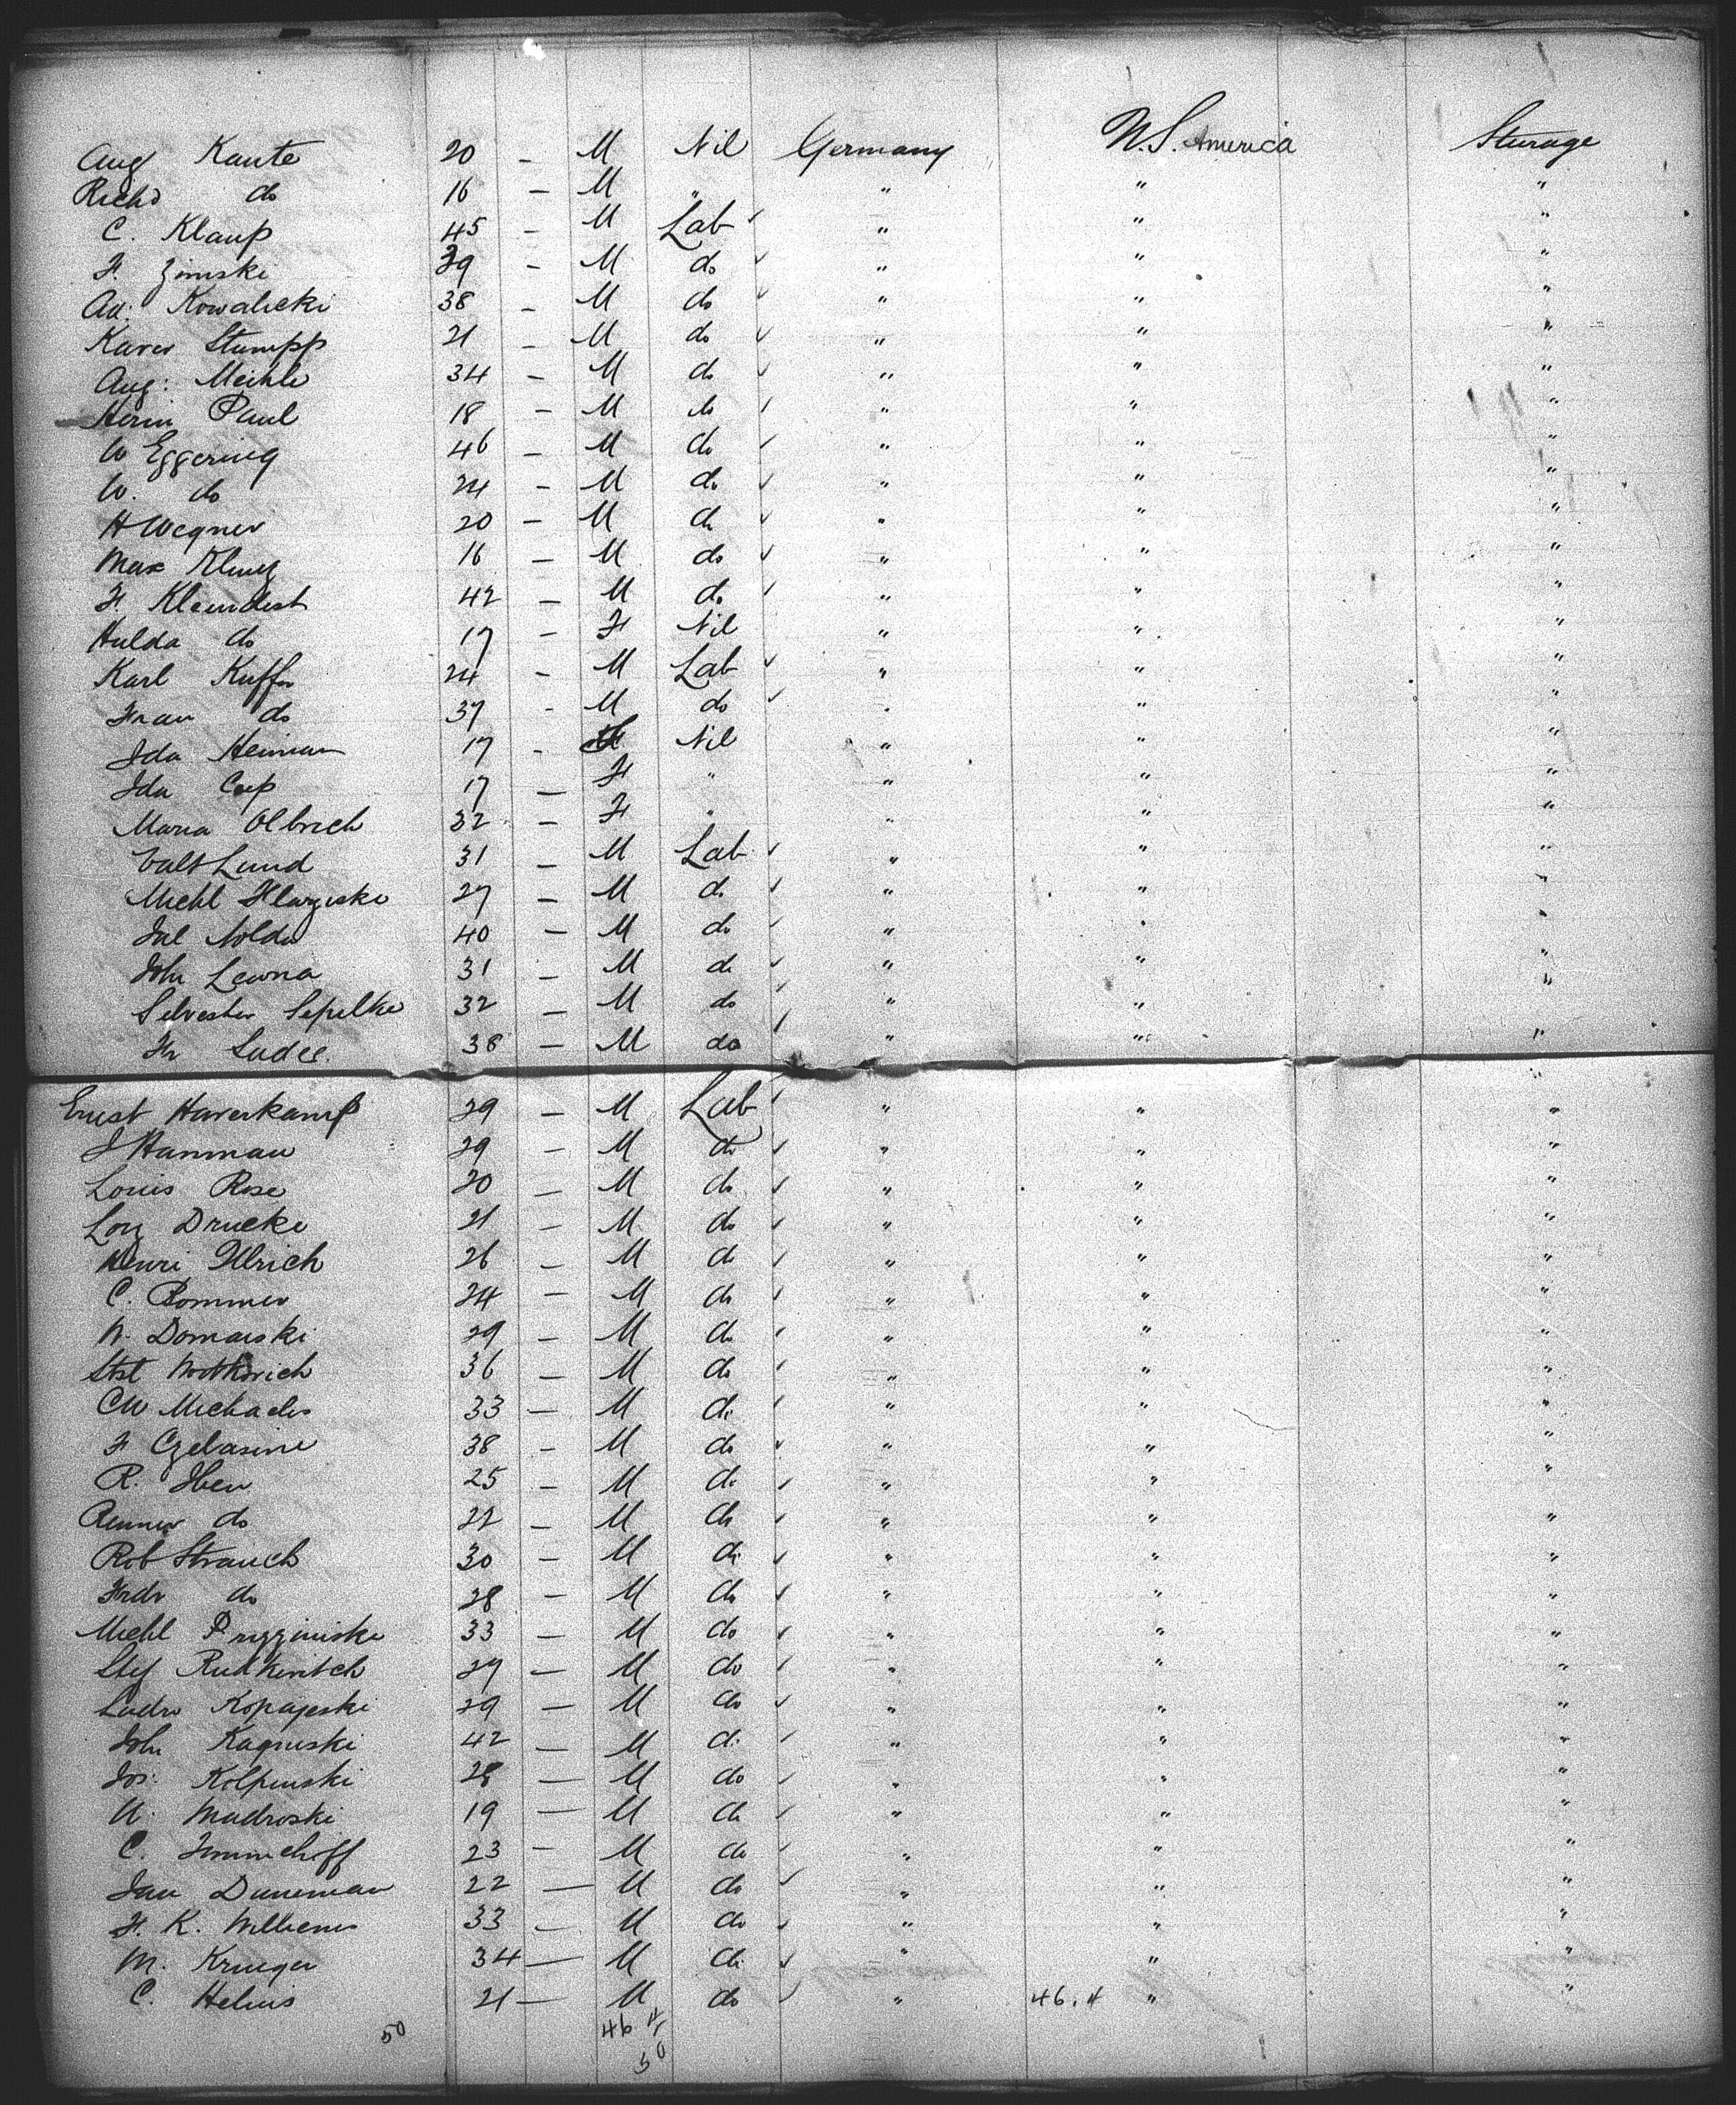 Aug Kante 20 - M Nil Germany U.S. America Sterage
Richd do 16 - M " " " "
C. Klaup 45 - M Lab " " "
F. Zimski 39 - M do " " "
Ad: Kowalicki 38 - M do " " "
Karer Stumpp 21 - M do " " "
Aug: Meihle 34 - M do " " "
Herm Paul 18 - M do " " "
W Eggering 46 - M do " " "
W. do 24 - M do " " "
H Wegner 20 - M do " " "
Max Klug 16 - M do " " "
F. Kleindest 42 - M do " " "
Hulda do 17 - F Nil " " "
Karl Kuffer 24 - M Lab " " "
Fran do 37 - M do " " "
Ida Heiman 17 - F Nil " " "
Ida 17 - F " " " "
Maria Olbrich 32 - F " " " "
Valt Lund 31 - M Lab " " "
Michl 27 - M do " " "
Jul Nolde 40 - M do " " "
Joh Lewna 31 - M do " " "
Selvester Sepelke 32 - M do " " "
Fr Sudee. 38 - M do " " "
Ernst Haverkamp 29 - M Lab " " "
J Hanman 29 - M do " " "
Louis Rose 20 - M do " " "
Lor Drucke 21 - M do " " "
Henri Ullrich 26 - M do " " "
C. Pommer 24 - M do " " "
N. Domarski 29 - M do " " "
36 - M do " " "
CW Michaelis 33 - M do " " "
F Czelasine 38 - M do " " "
R. Iben 25 - M do " " "
Renner do 22 - M do " " "
Rob Strauch 30 - M do " " "
Fredr do 28 - M do " " "
Michl Pryziniski 33 - M do " " "
Stef Rudkevitch 27 - M do " " "
Ludro Kopajeski 29 - M do " " "
Joh Kagruski 42 - M do " " "
Jos: Kolpenski 28 - M do " " "
A. Madroski 19 - M do " " "
C. Immchoff 23 - M do " " "
Jan Duneman 22 - M do " " "
F. K. Williems 33 - M do " " "
M. Krueger 34 - M do " " "
C. Helms 21 - M do " 46.4 " "
50 46 4
50